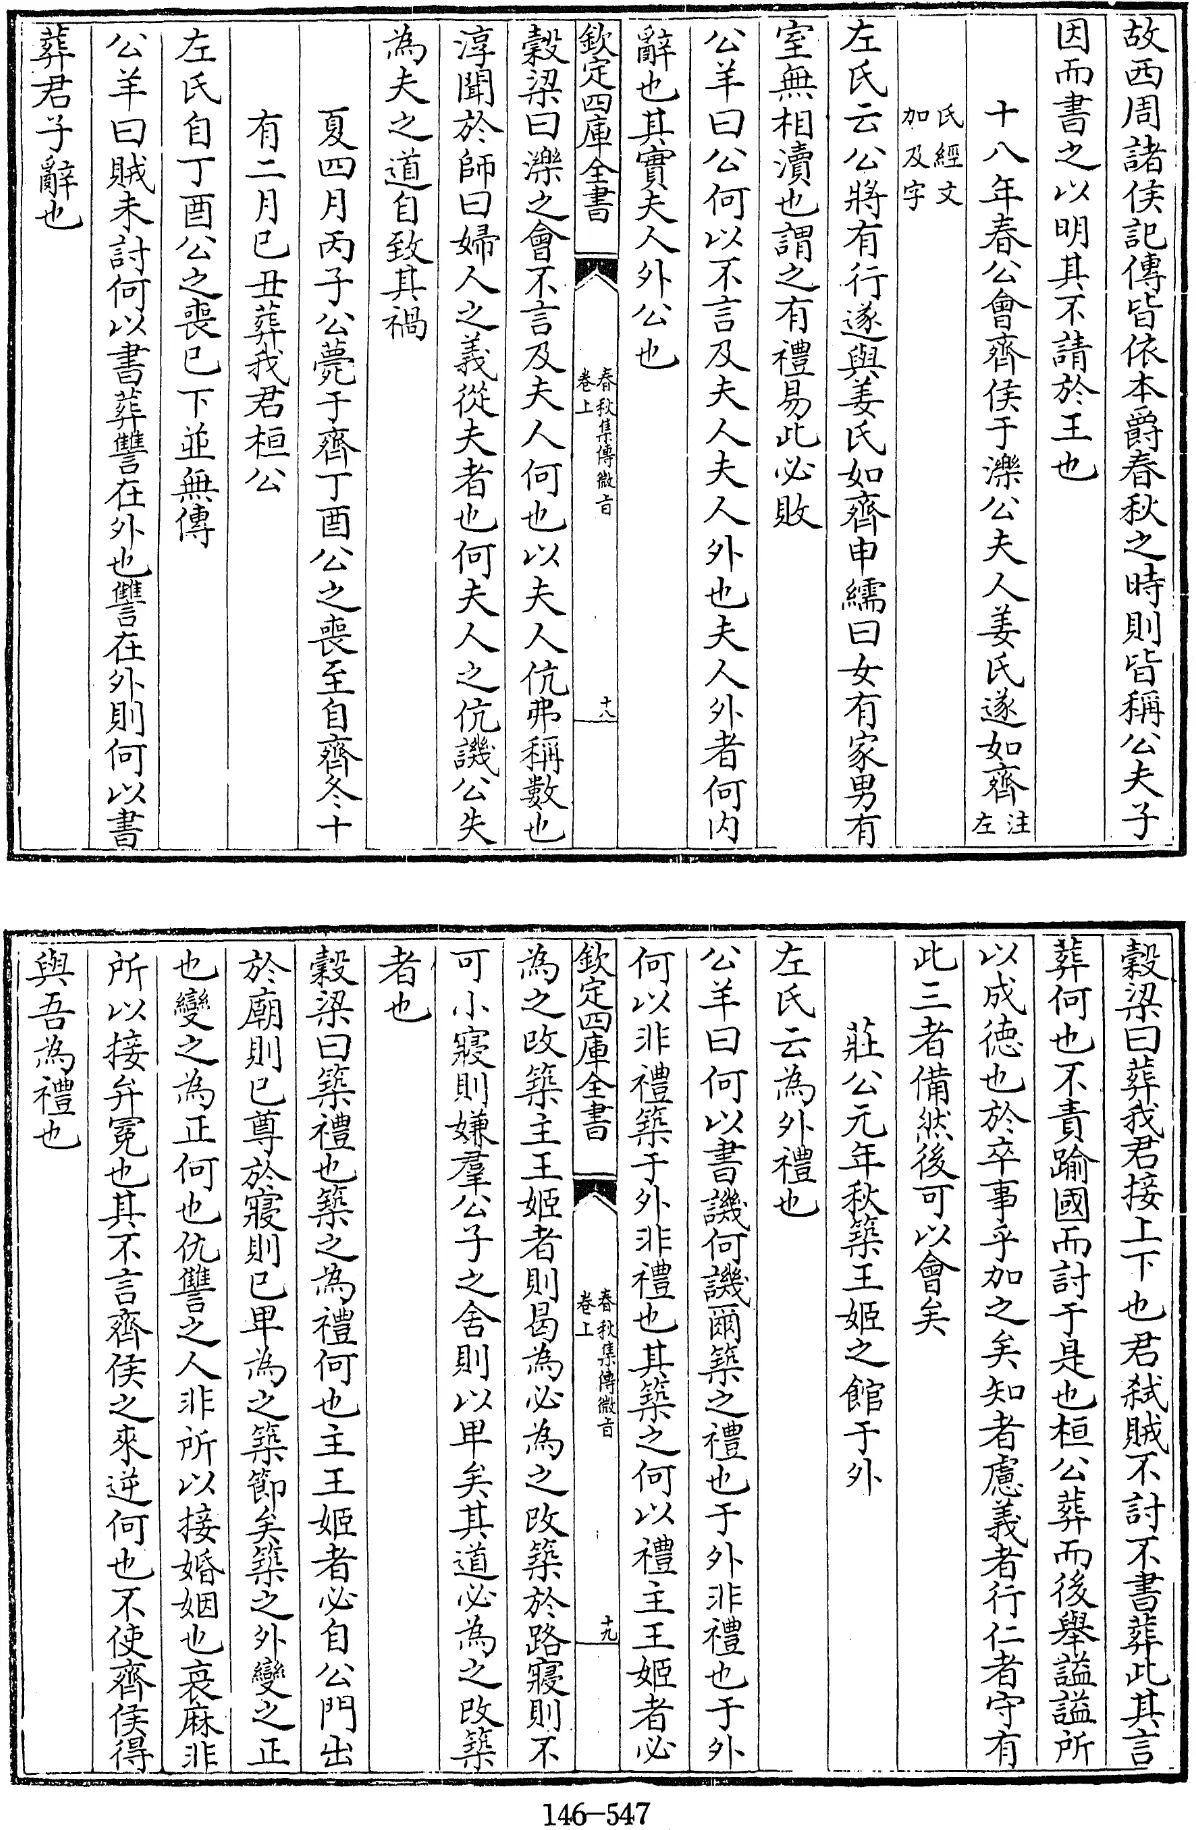 故西周諸侯記傳皆依本爵春秋之時則皆稱公夫子
因而書之以明其不請於王也
十八年春公會齊侯于濼公夫人姜氏遂如齊注左
氏經文加及字
左氏云公將有行遂與姜氏如齊申繻曰女有家男有
室無相瀆也謂之有禮易此必敗
公羊曰公何以不言及夫人夫人外也夫人外者何内
辭也其實夫人外公也
欽定四庫全書
春秋集傳微旨
卷上
十八
穀梁曰濼之會不言及夫人何也以夫人伉弗稱數也
淳聞於師曰婦人之義從夫者也何夫人之伉譏公失
為夫之道自致其禍
夏四月丙子公薨于齊丁酉公之喪至自齊冬十
有二月已丑葬我君桓公
左氏自丁酉公之喪已下並無傳
公羊曰賊未討何以書葬讐在外也讐在外則何以書
葬君子辭也
穀梁曰葬我君接上下也君弑賊不討不書葬此其言
葬何也不責踰國而討于是也桓公葬而後舉諡諡所
以成德也於卒事乎加之矣知者慮義者行仁者守有
此三者備然後可以會矣
莊公元年秋築王姬之館于外
左氏云為外禮也
公羊曰何以書譏何譏爾築之禮也于外非禮也于外
何以非禮築于外非禮也其築之何以禮主王姬者必
欽定四庫全書
春秋集傳微旨
卷上
十九
為之改築主王姬者則曷為必為之改築於路寢則不
可小寢則嫌羣公子之舍則以卑矣其道必為之改築
者也
穀梁曰築禮也築之為禮何也主王姬者必自公門出
於廟則已尊於寢則已卑為之築節矣築之外變之正
也變之為正何也仇讐之人非所以接婚姻也衰麻非
所以接弁冕也其不言齊侯之來逆何也不使齊侯得
與吾為禮也
146-547